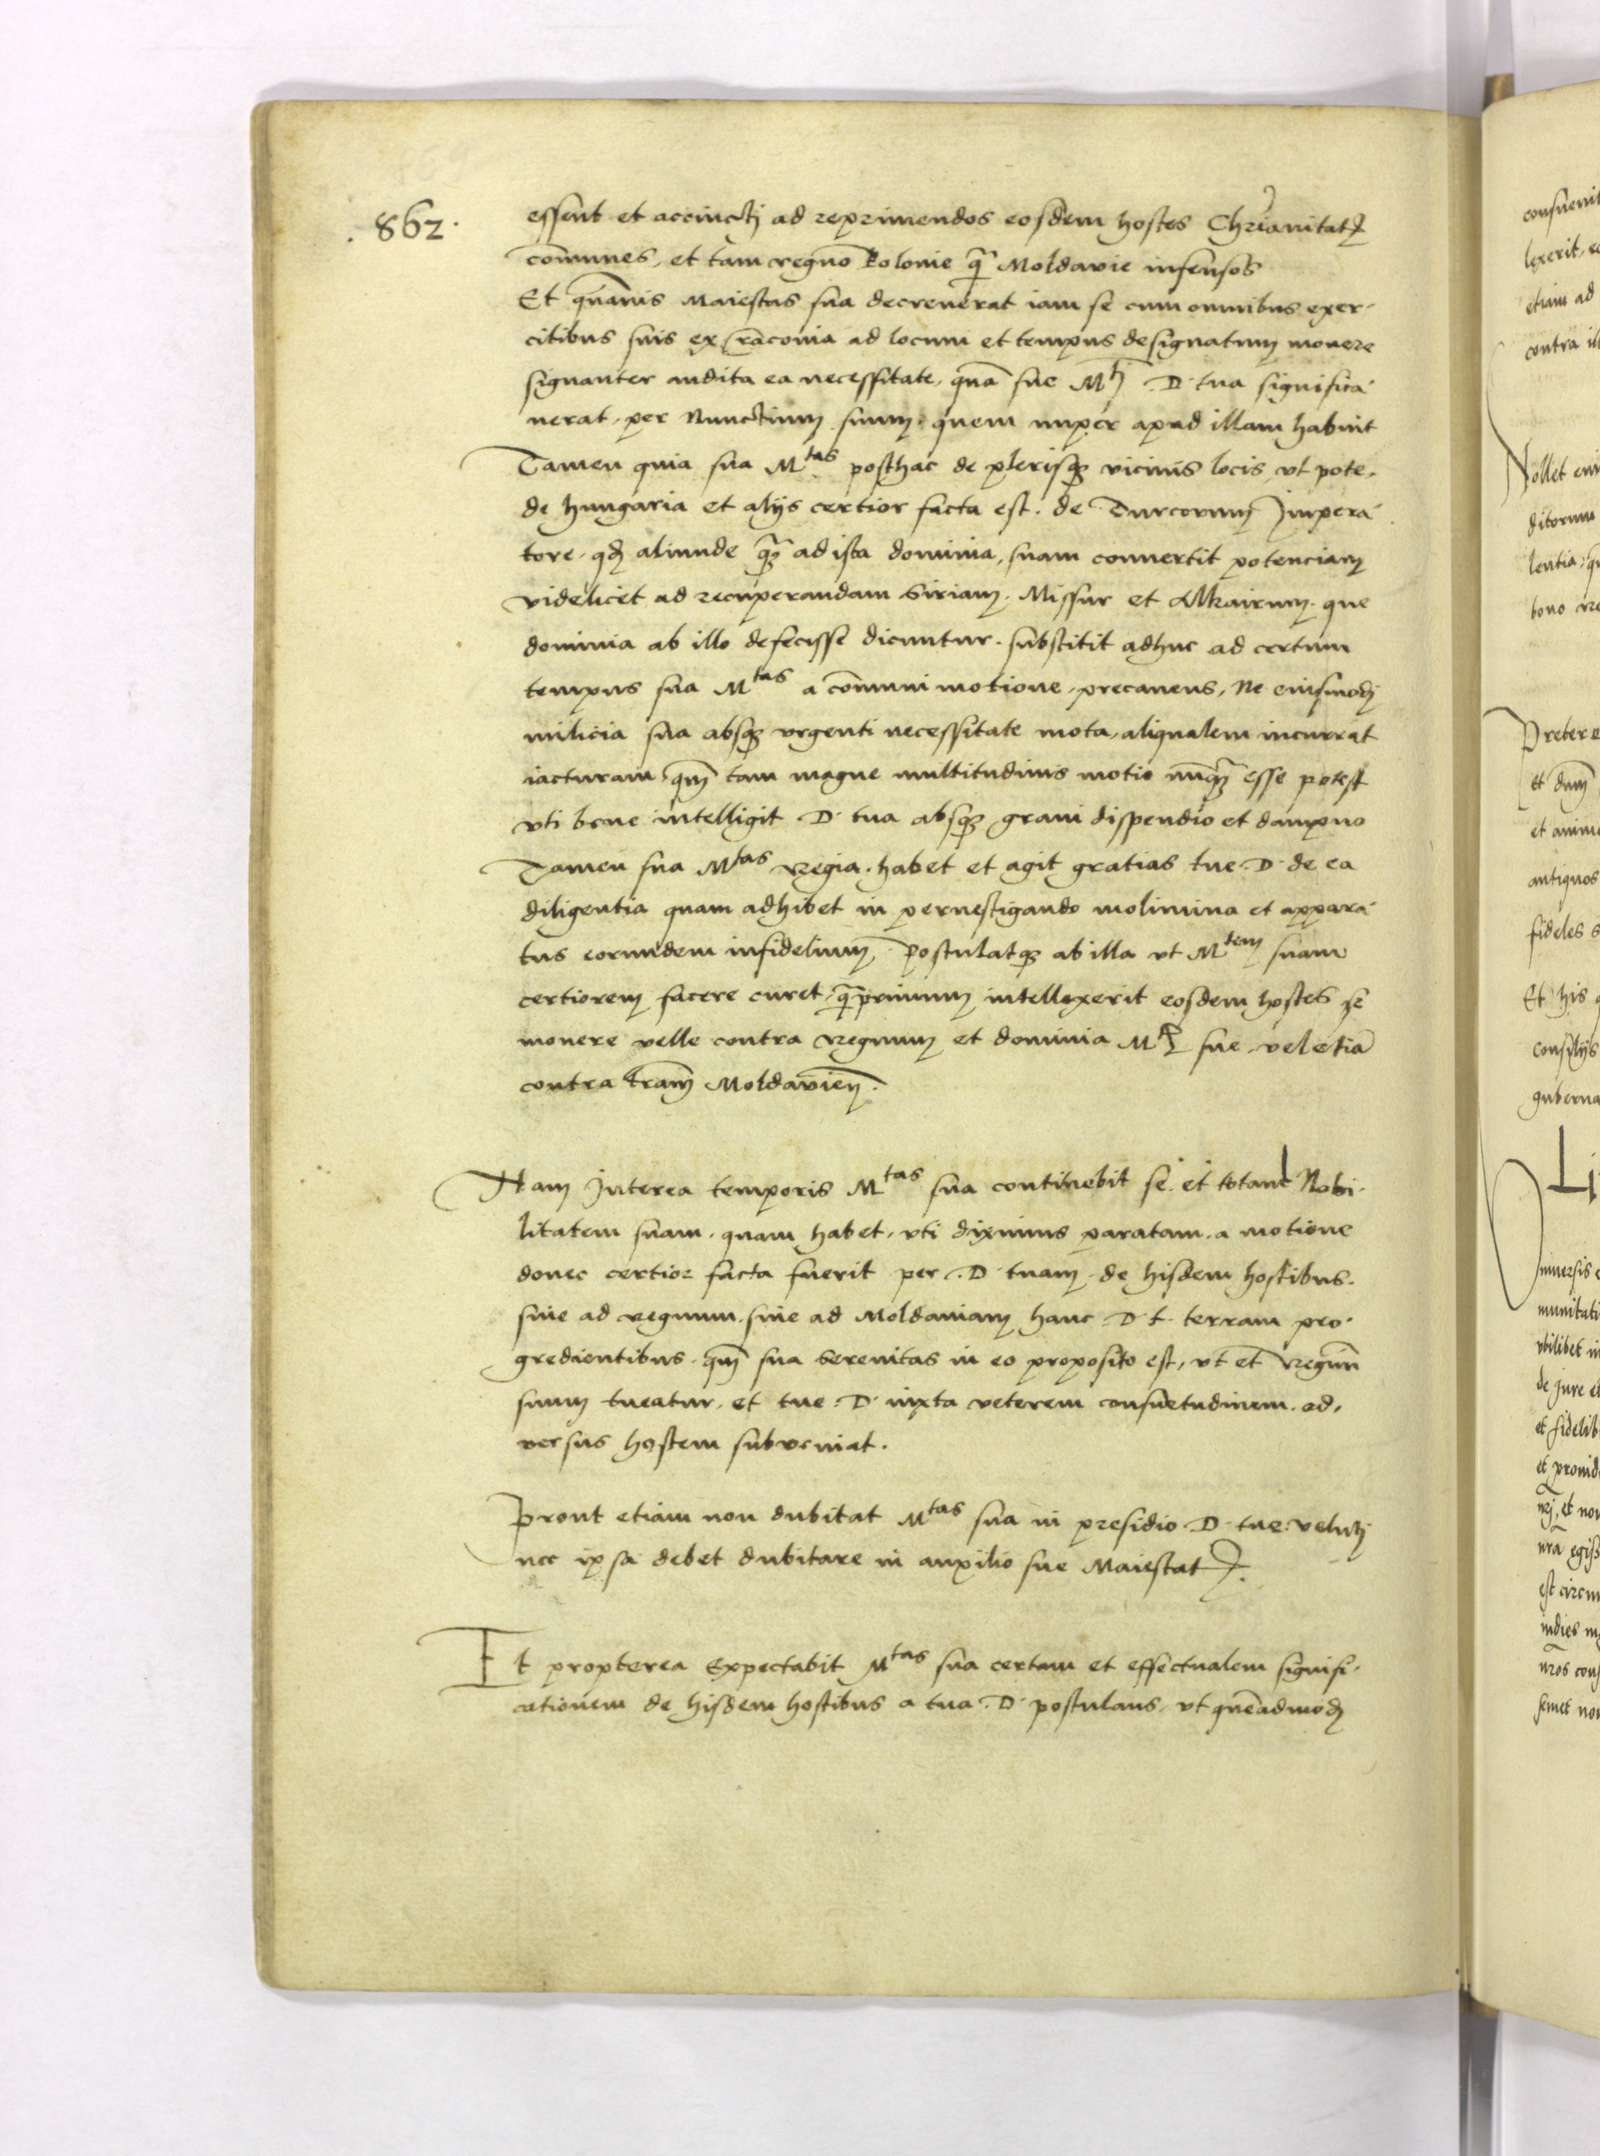 .862.
essent et accincti ad reprimendos eosdem hostes Chr̃ianitatꝭ
com̃unes, et tam regno Polonie q̃ Moldavie infensos
Et qua̅uis Maiestas sua decreuerat iam se cum omnibus exer-
citibus suis ex Cracovia ad locum et tempus designatum mouere
signanter audita ea necessitate, qua̅ sue Mti D. tua significa-
uerat per Nunctium suum quem nuper apud illam habuit
Tamen quia sua Mtas posthac de plerisqꝫ vicinis locis, vt pote,
de Hungaria et alijs certior facta est. de Turcorum Impera-
tore. qđ aliunde qꝫ̃ ad ista dominia, suam conuertit potenciam
videlicet ad recuperandam Siriam. Missur et Alkairum. que
dominia ab illo defecisse dicuntur. substitit adhuc ad certum
tempus sua Mtas a com̃uni motione, precauens, Ne eiusmodj
milicia sua absqꝫ vrgenti necessitate mota, aliqualem incurrat
iacturam, qm̃ tam magne multitudinis motio nu̅qꝫ̃ esse potest
vti bene intelligit D. tua absqꝫ graui dispendio et dampno
Tamen sua Mtas Regia. habet et agit gratias tue. D. de ea
diligentia quam adhibet in peruestigando molimina et appara-
tus eorundem infidelium. Postulatqꝫ ab illa vt Mtem suam
certiorem facere curet, q̃primum intellexerit eosdem hostes se
mouere velle contra Regnum et dominia Mtꝭ sue, vel etia̅
contra tr̃am Moldavien̄.
Nam Interea temporis Mtas sua continebit se. et totam Nobi-
litatem suam. quam habet, vti diximus paratam. a motione
donec certior facta fuerit per. D. tuam. de hisdem hostibus.
siue ad regnum. siue ad Moldauiam hanc D. t. terram pro-
gredientibus. qm̃ sua Serenitas in eo proposito est, vt et Regnu̅
suum tueatur, et tue. D. iuxta veterem consuetudinem. ad-
versus hostem subveniat.
Prout etiam non dubitat Mtas sua in presidio. D. tue: velutj
nec ipsa debet dubitare in auxilio sue Maiestatꝭ.
Et propterea Expectabit Mtas sua certam et effectualem signifi-
cationem de hisdem hostibus a tua. D. postulans, vt que̅admodꝫ
consueuit
lexerit, e
etiam ad
contra il
Nollet eni
ditorum
lentia, q
bono
Pretere
et dum̃
et anim
antiquos
fideles s
Et his
consilijs
guberna
Li
muersis
munitati
vtilibet in
de jure et
et fidelib
et prouid
nrj, et no
nra̅ egiss
est circu
indies m
nros cons
semet no